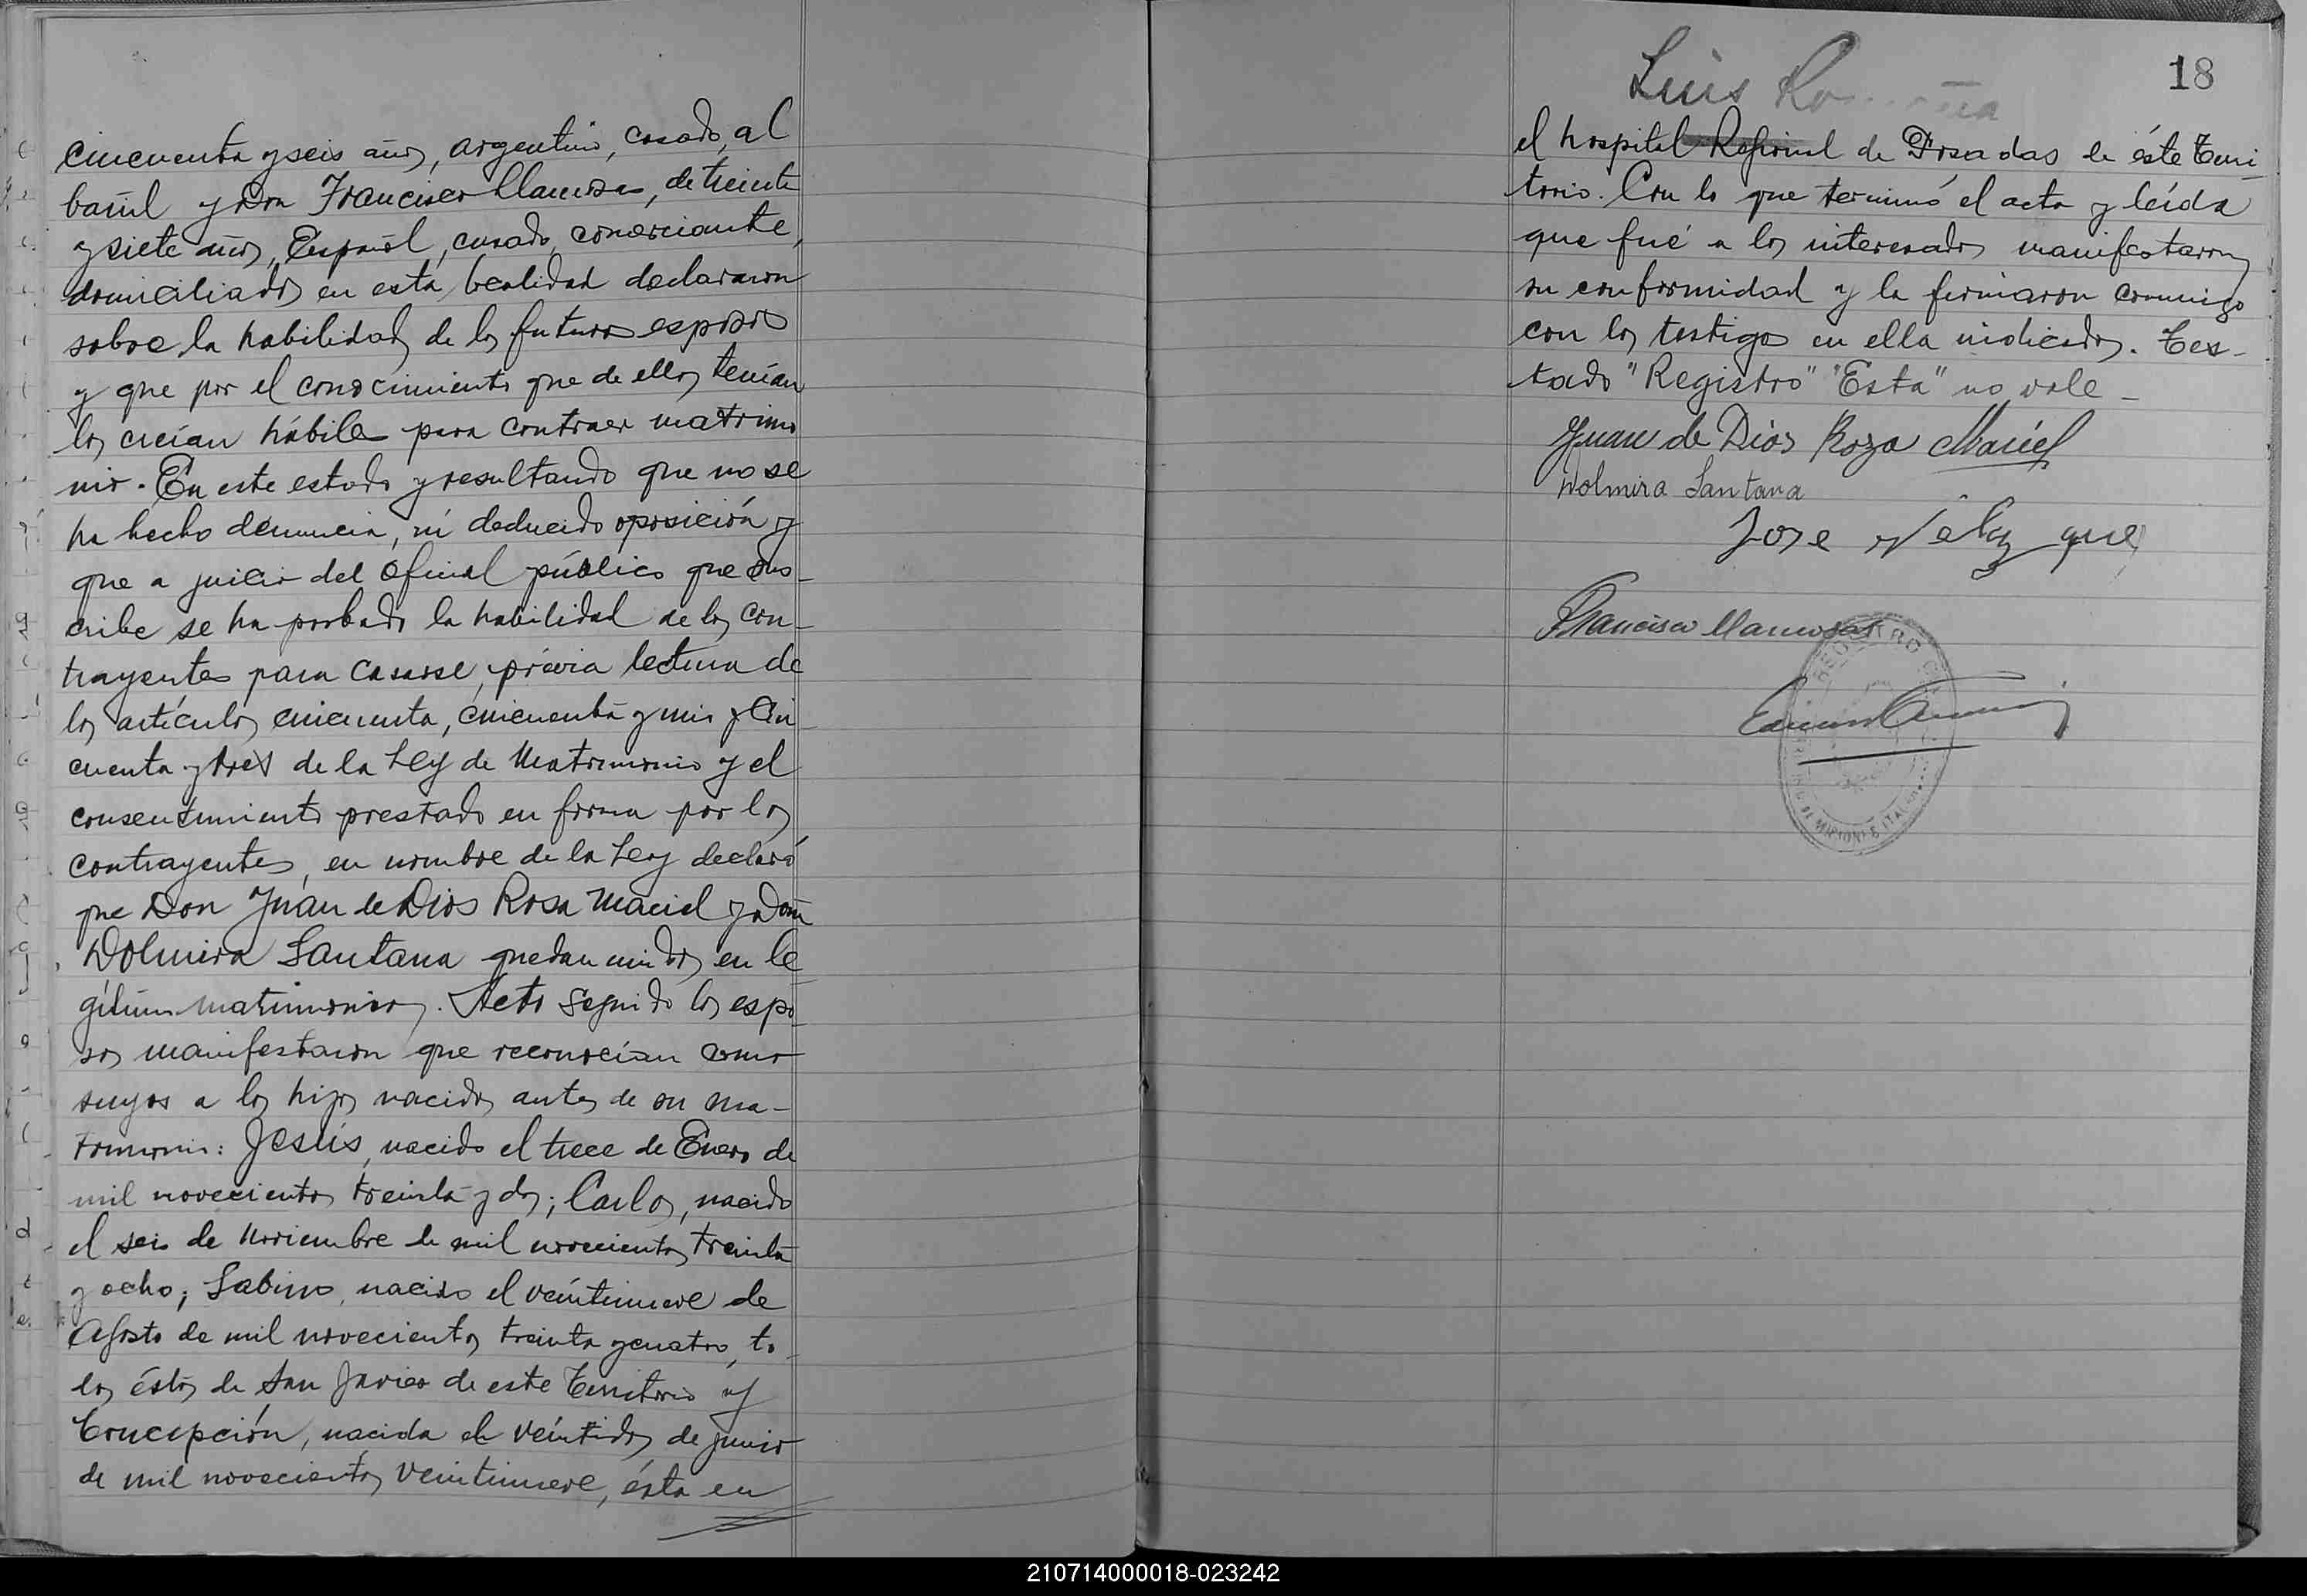 cincuenta y seis años, argentino, casado, al
bañil y Don Francisco Llamosas, de treinta
y siete años, Español, casado, comerciante,
domiciliados en esta localidad declararon
sobre la habilidad de los futuros esposos
y que por el conocimiento que de ellos tenían
los creían hábiles para contraer matrimo
nio. En este estado y resultando que no se
ha hecho denuncia, ni deducido oposición y
que a juicio del Oficial público que sus-
cribe se ha probado la habilidad de los con-
trayentes para casarse, prévia lectura de
los artículos cincuenta, cincuenta y uno y cin
cuenta y tres de la Ley de Matrimonio y el
consentimiento prestado en forma por los
contrayentes, en nombre de la Ley declaró
que Don Juan de Dios Rosa Maciel y doña
Dolmira Santana quedan unidos en le
gítimo matrimonio. Acto seguido los espo
sos manifestaron que reconocían como
suyos a los hijos nacidos antes de su ma-
trimonio: Jesús, nacido el trece de Enero de
mil novecientos treinta y dos; Carlos, nacido
el seis de Noviembre de mil novecientos treinta
y ocho; Sabino, nacido el veintinueve de
Agosto de mil novecientos treinta y cuatro, to-
dos éstos de San Javier de este Territorio y
Concepción, nacida el veintidos de junio
de mil novecientos veintinueve, ésta en
Luis
18
el hospital Regional de Posadas de éste Terri-
torio. Con lo que terminó el acta y leída
que fué a los interesados manifestaron
su conformidad y la firmaron conmigo
con los testigos en ella indicados. Tes-
tado "Registro" "Esta" no vale -
Juan de Dios Roza Maciel
Dolmira Santana
Jose Velazque
Francisco Llamosas
REGISTRO
210714000018-023242